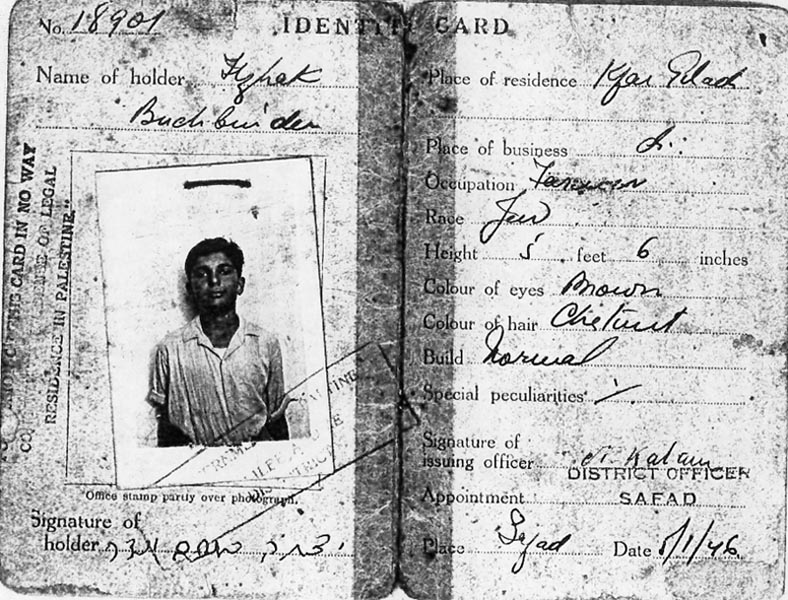 No. 18901
IDENTITY CARD
Name of holder Itzhak
Buchbinder
OF THE CARD IN NO WAY
OF LEGAL
RESIDENCE IN PALESTINE."
Office stamp partly over photograph.
Signature of
holder
Place of residence Kfar Giladi
Place of business
Occupation Farmer
Race Jew
Height 5 feet 6 inches
Colour of eyes Brown
Colour of hair Chestnut
Build Normal
Special peculiarities /.
Signature of
issuing officer
DISTRICT OFFICER
Appointment SAFAD
Place Safad Date 5/1/46